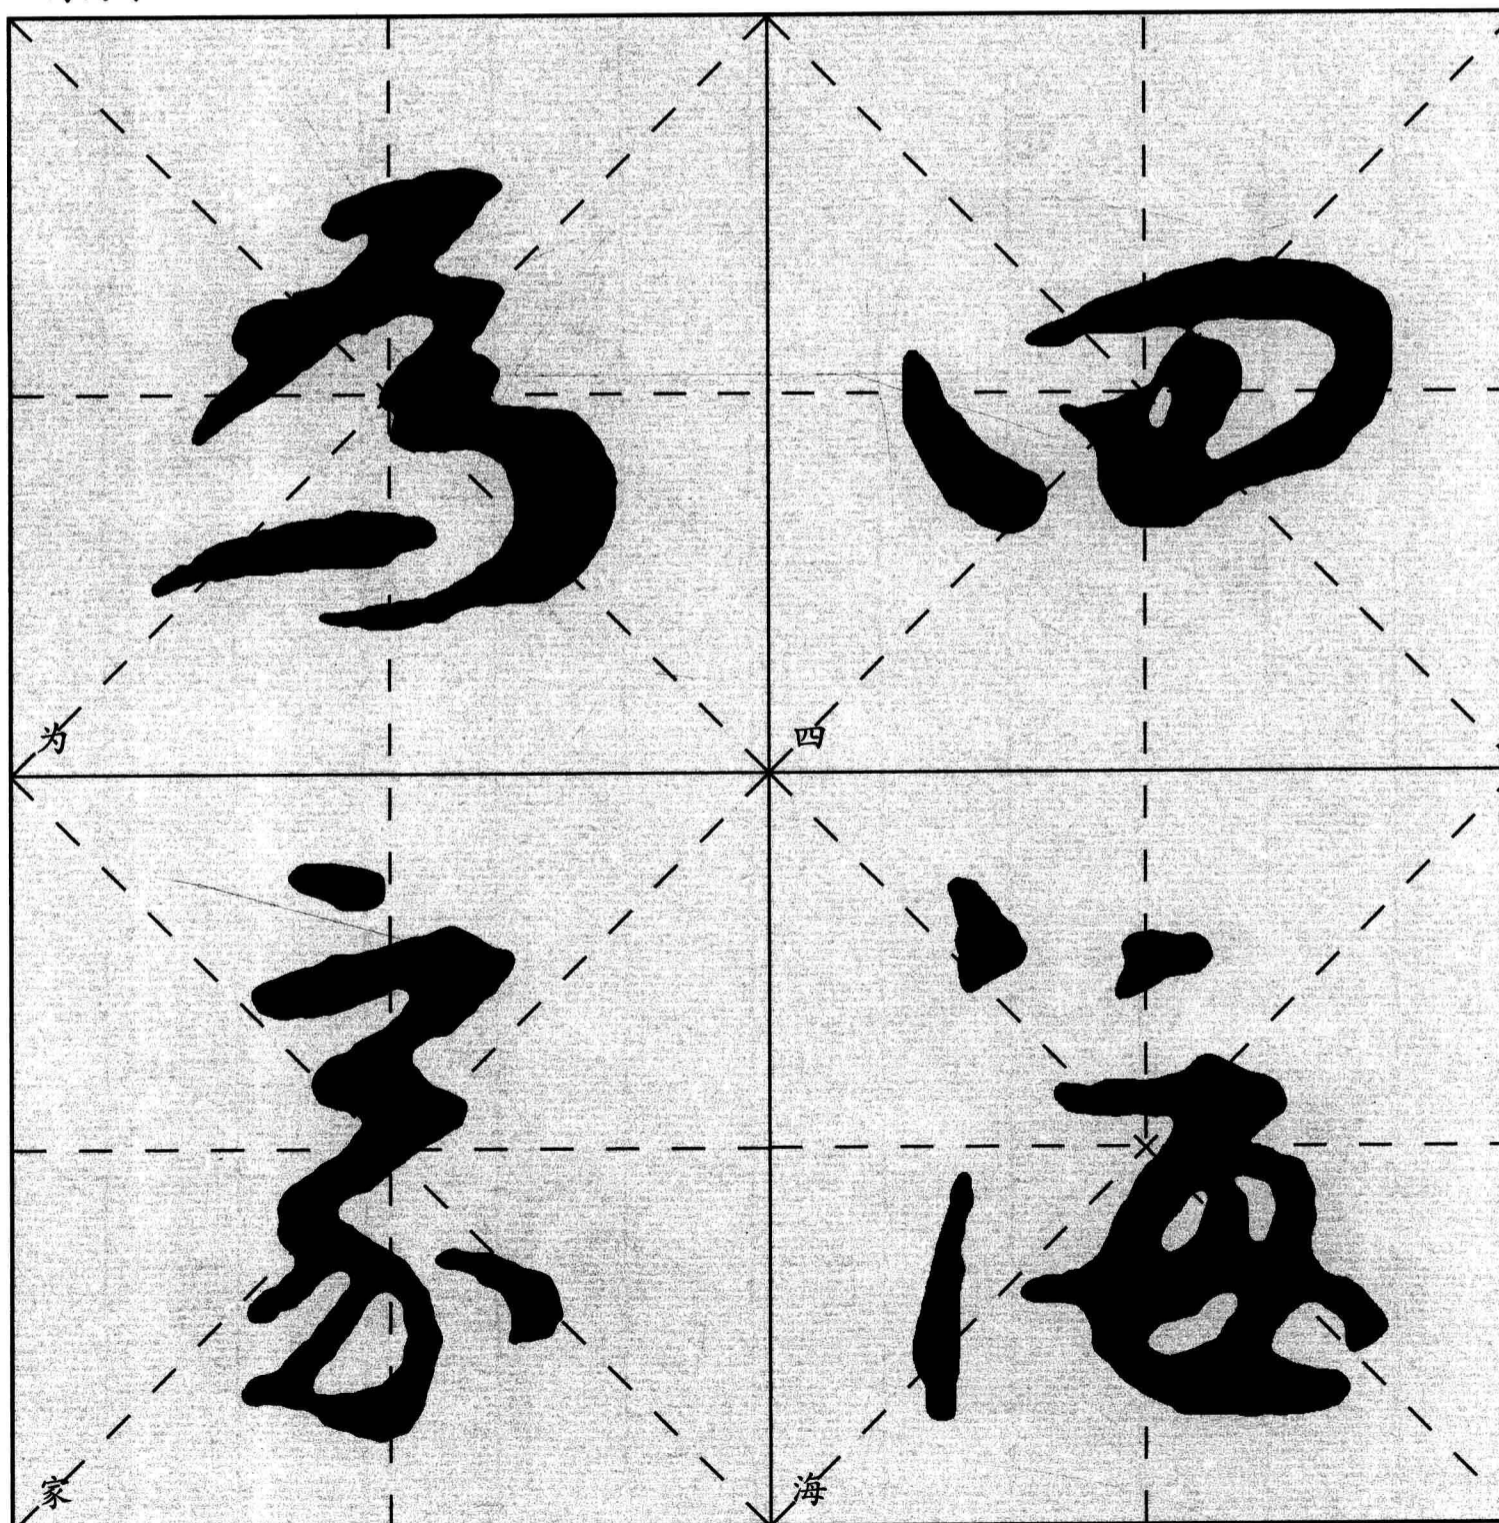 四
四
海
海
為
为
家
家